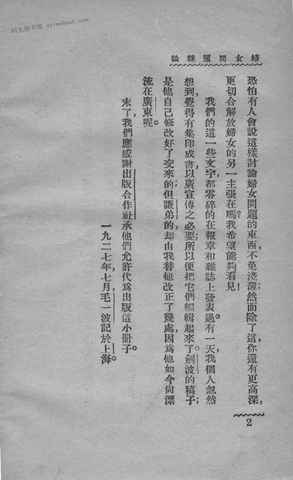 婦女問題雜論
恐怕有人會說這樣討論婦女問題的東西不免淺薄然而除了這，你還有更高深，
更切合解放婦女的另一主張在嗎我希望能夠看見！
我們的這一些文字都零碎的在報章和雜誌上發表過。有一天，我個人忽然
想到覺得有集印成書以廣宣傳之必要所以便把它們編輯起來了。劍波的稿子；
是他自己修改好了交來的但謙弟的，却由我替他改正了幾處，因爲他如今尚漂
流在廣東呢。
末了，我們應感謝出版合作社承他們允許代爲出版這小冊子。
一九二七年七月毛一波記於上海。
2